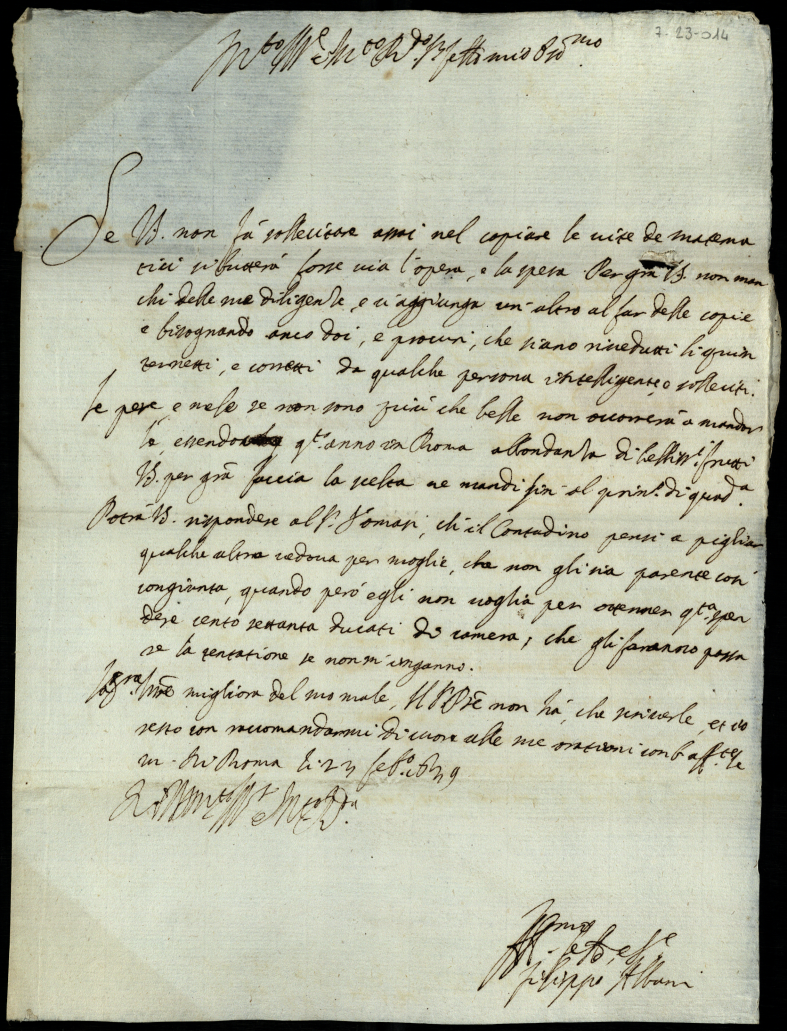 7-23-014
Mto Illre e Mto Rdo Sr
Se V.S. non fà sollecitare assai nel copiare le vite de matema
tici si butterà forse via l'opera, e la spesa. Per grã V.S. non man
chi delle sue diligenze, e v'aggiunga un'altro al far delle copie
e bisognando anco doi, e procuri, che siano riveduti li quin
ternetti, e corretti da qualche persona intelligente, e solleciti.
Le pere e mele se non sono più che belle non occorrerà mandar
le, essendo qto anno in Roma abbondanza di bellissi. frutti
V.S. per grã faccia la scelta ne mandi sin al prino. di quada.
Potrà V.S. rispondere al Sr. Tomasi, che il Contadino pensi a pigliar
qualche altra vedova per moglie, che non gli sia parente così
congiunta, quando però egli non voglia per ottener qta spen
dere cento settanta ducati di camera, che gli faranno passa
re la tentatione se non m'inganno.
migliora del suo male, Il Sr. non hà, che scriverle, et io
resto con raccomandarmi di cuore alle sue orationi con
Di Roma li 23 febo. 1639
Di V.S. Mto Illre e Mto Rda
Filippo Albani